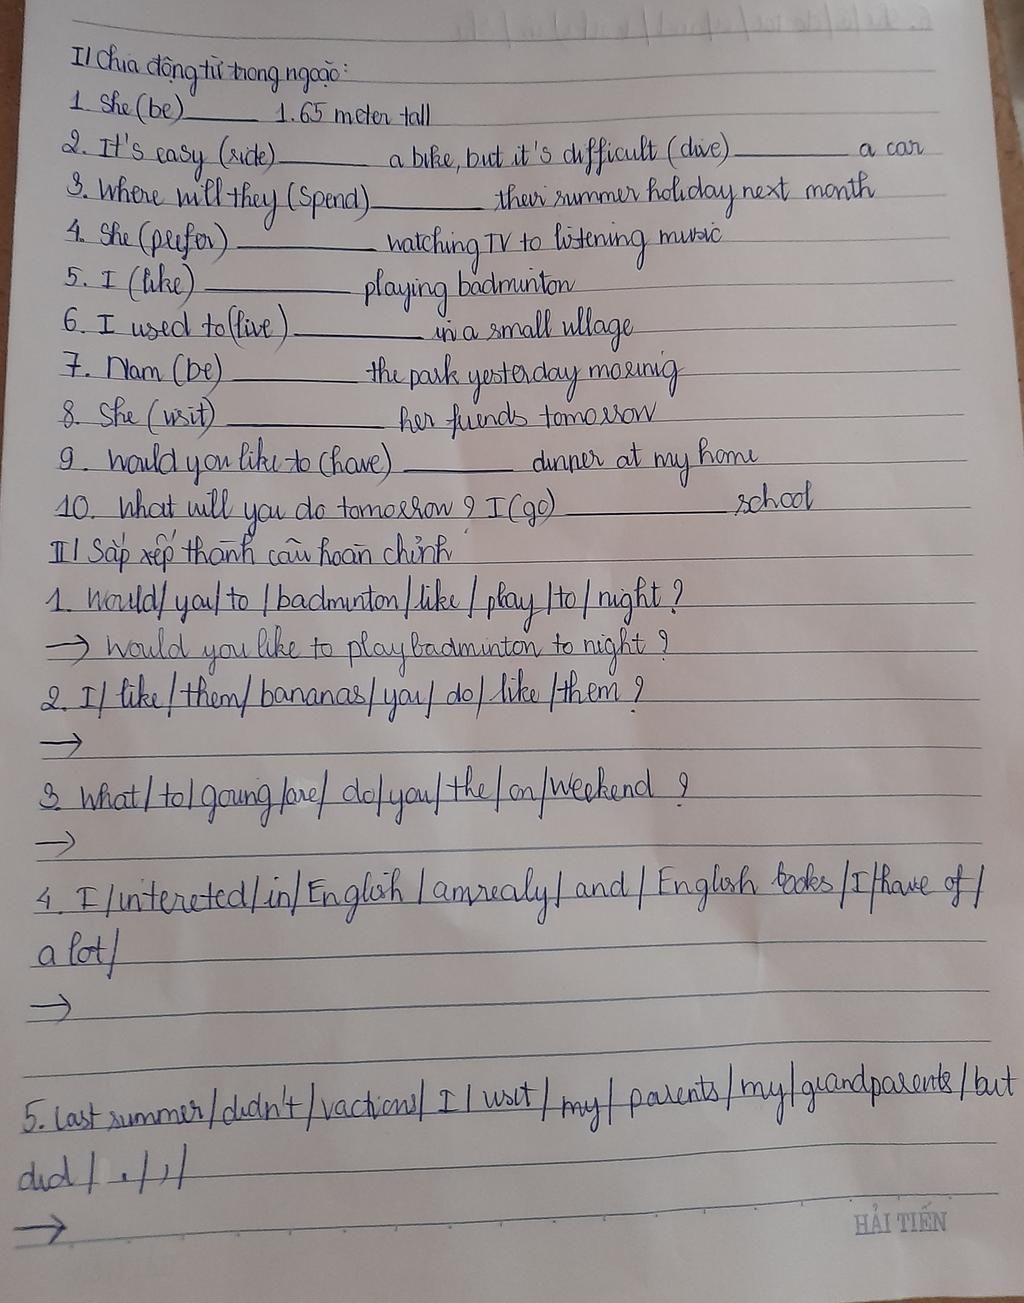 I/ Chia động từ trong ngoặc:
1. She (be)______ 1.65 meter tall
2. It's easy (ride)______ a bike, but it's difficult (drive)______ a car
3. Where will they (spend)______ their summer holiday next month
4. She (prefer)______ watching TV to listening music
5. I (like)______ playing badminton
6. I used to (live)______ in a small village
7. Nam (be)______ the park yesterday morning
8. She (visit)______ her friends tomorrow
9. Would you like to (have)______ dinner at my home
10. What will you do tomorrow? I (go)______ school
II/ Sắp xếp thành câu hoàn chỉnh
1. Would/ you/ to / badminton/ like / play / to / night?
→ Would you like to play badminton to night?
2. I/ like / them/ bananas/ you/ do/ like / them?
→
3. What/ to/ going/ are/ do/ you/ the/ on/ weekend ?
→
4. I / intereted/ in/ English / am realy/ and / English books / I / have of /
a lot/
→
5. Last summer / didn't / vactions/ I / visit / my / parents / my / grandparents / but
did / . / , /
→
HẢI TIẾN